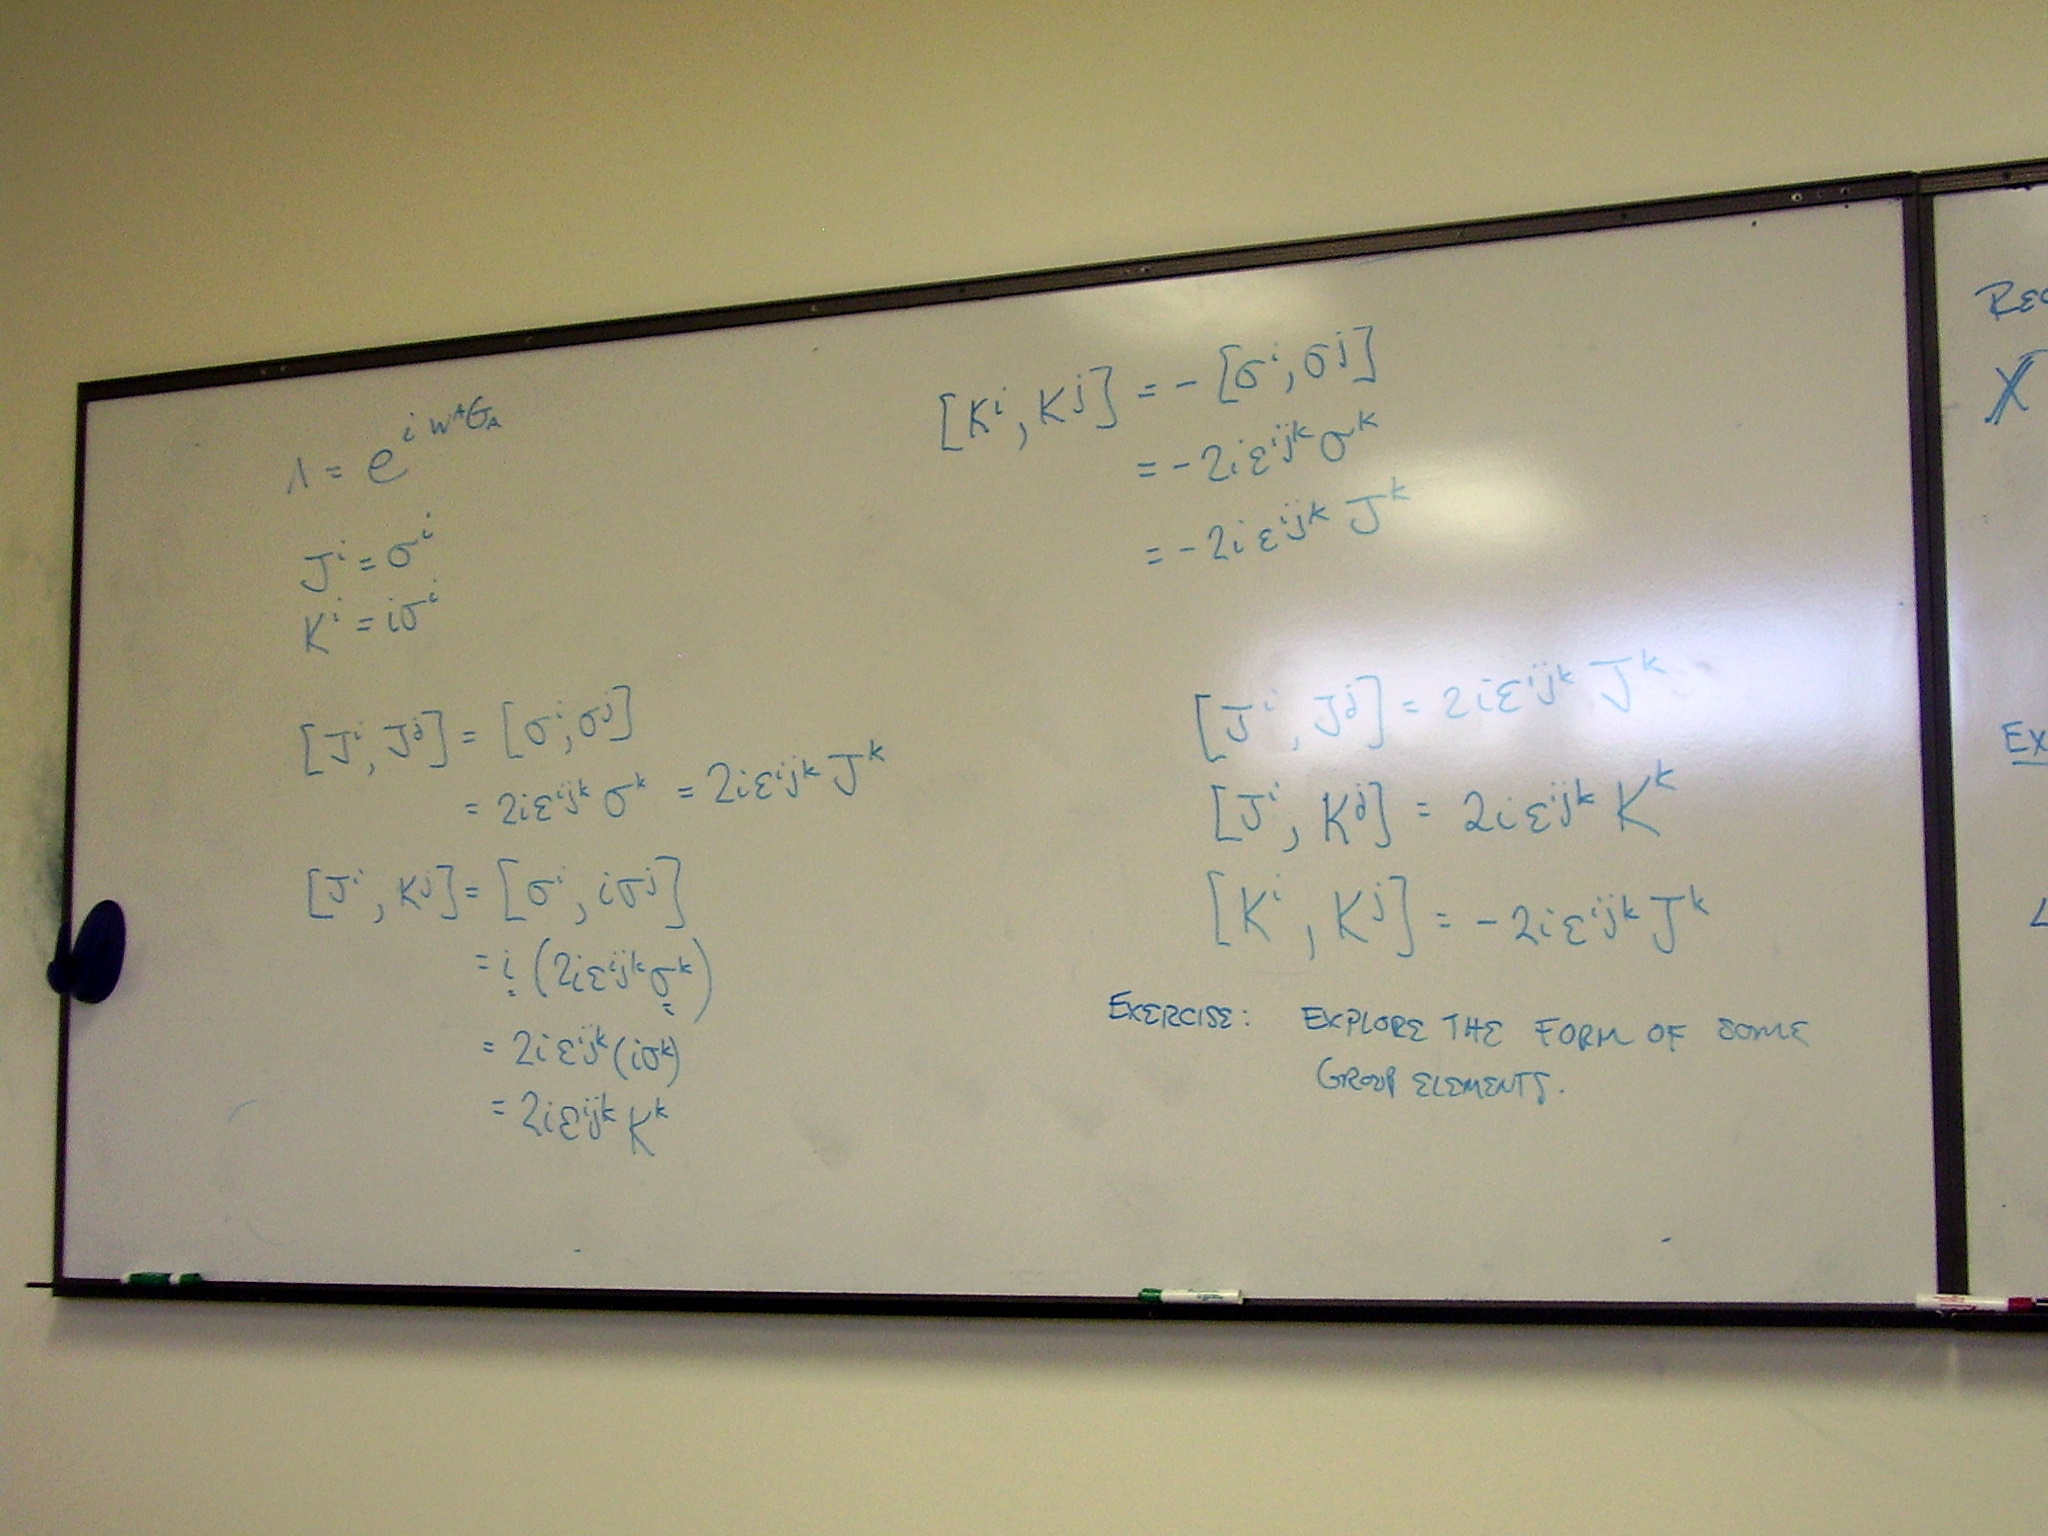 Λ = e^{i w^A G_A}
J^i = σ^i
K^i = iσ^i
[J^i, J^j] = [σ^i, σ^j]
= 2iε^{ijk} σ^k = 2iε^{ijk} J^k
[J^i, K^j] = [σ^i, iσ^j]
= i (2iε^{ijk} σ^k)
= 2iε^{ijk} (iσ^k)
= 2iε^{ijk} K^k
[K^i, K^j] = - [σ^i, σ^j]
= - 2iε^{ijk} σ^k
= - 2iε^{ijk} J^k
[J^i, J^j] = 2iε^{ijk} J^k
[J^i, K^j] = 2iε^{ijk} K^k
[K^i, K^j] = - 2iε^{ijk} J^k
EXERCISE: EXPLORE THE FORM OF SOME
GROUP ELEMENTS.